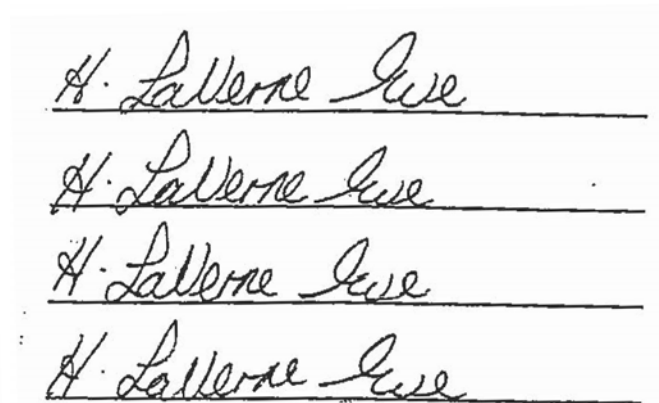 H. LaVerne Ewe
H. LaVerne Ewe
H. LaVerne Ewe
H. LaVerne Ewe